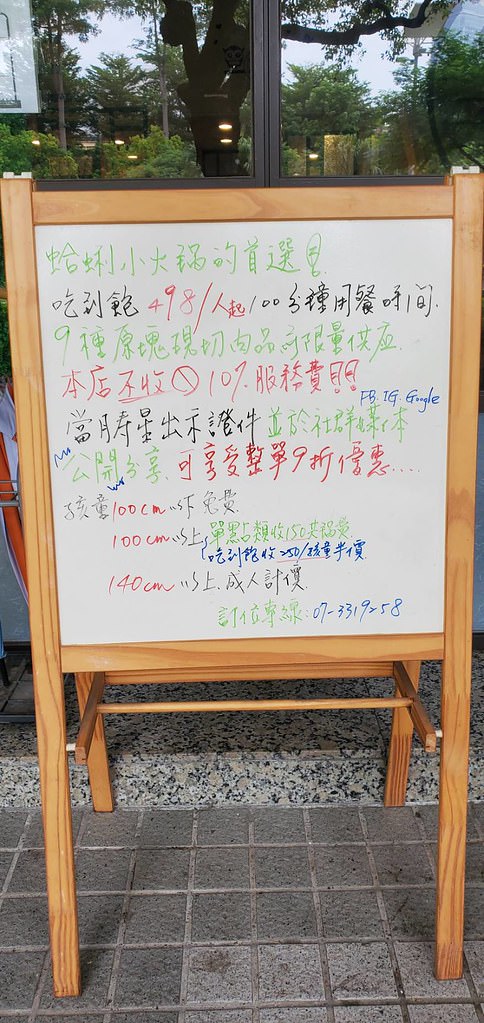 蛤蜊小火鍋的首選!!
吃到飽 498/人起 100分鐘用餐時間.
9種原塊現切肉品可限量供应.
本店不收 10% 服務費!!
FB. IG. Google
當月寿星出示證件並於社群媒体
公開分享.可享受整單9折優惠....
孩童100cm以下免費
100cm以上 單點類收150共鍋費
吃到飽收250/孩童半價
140cm以上.成人計價.
訂位專線:07-3319258